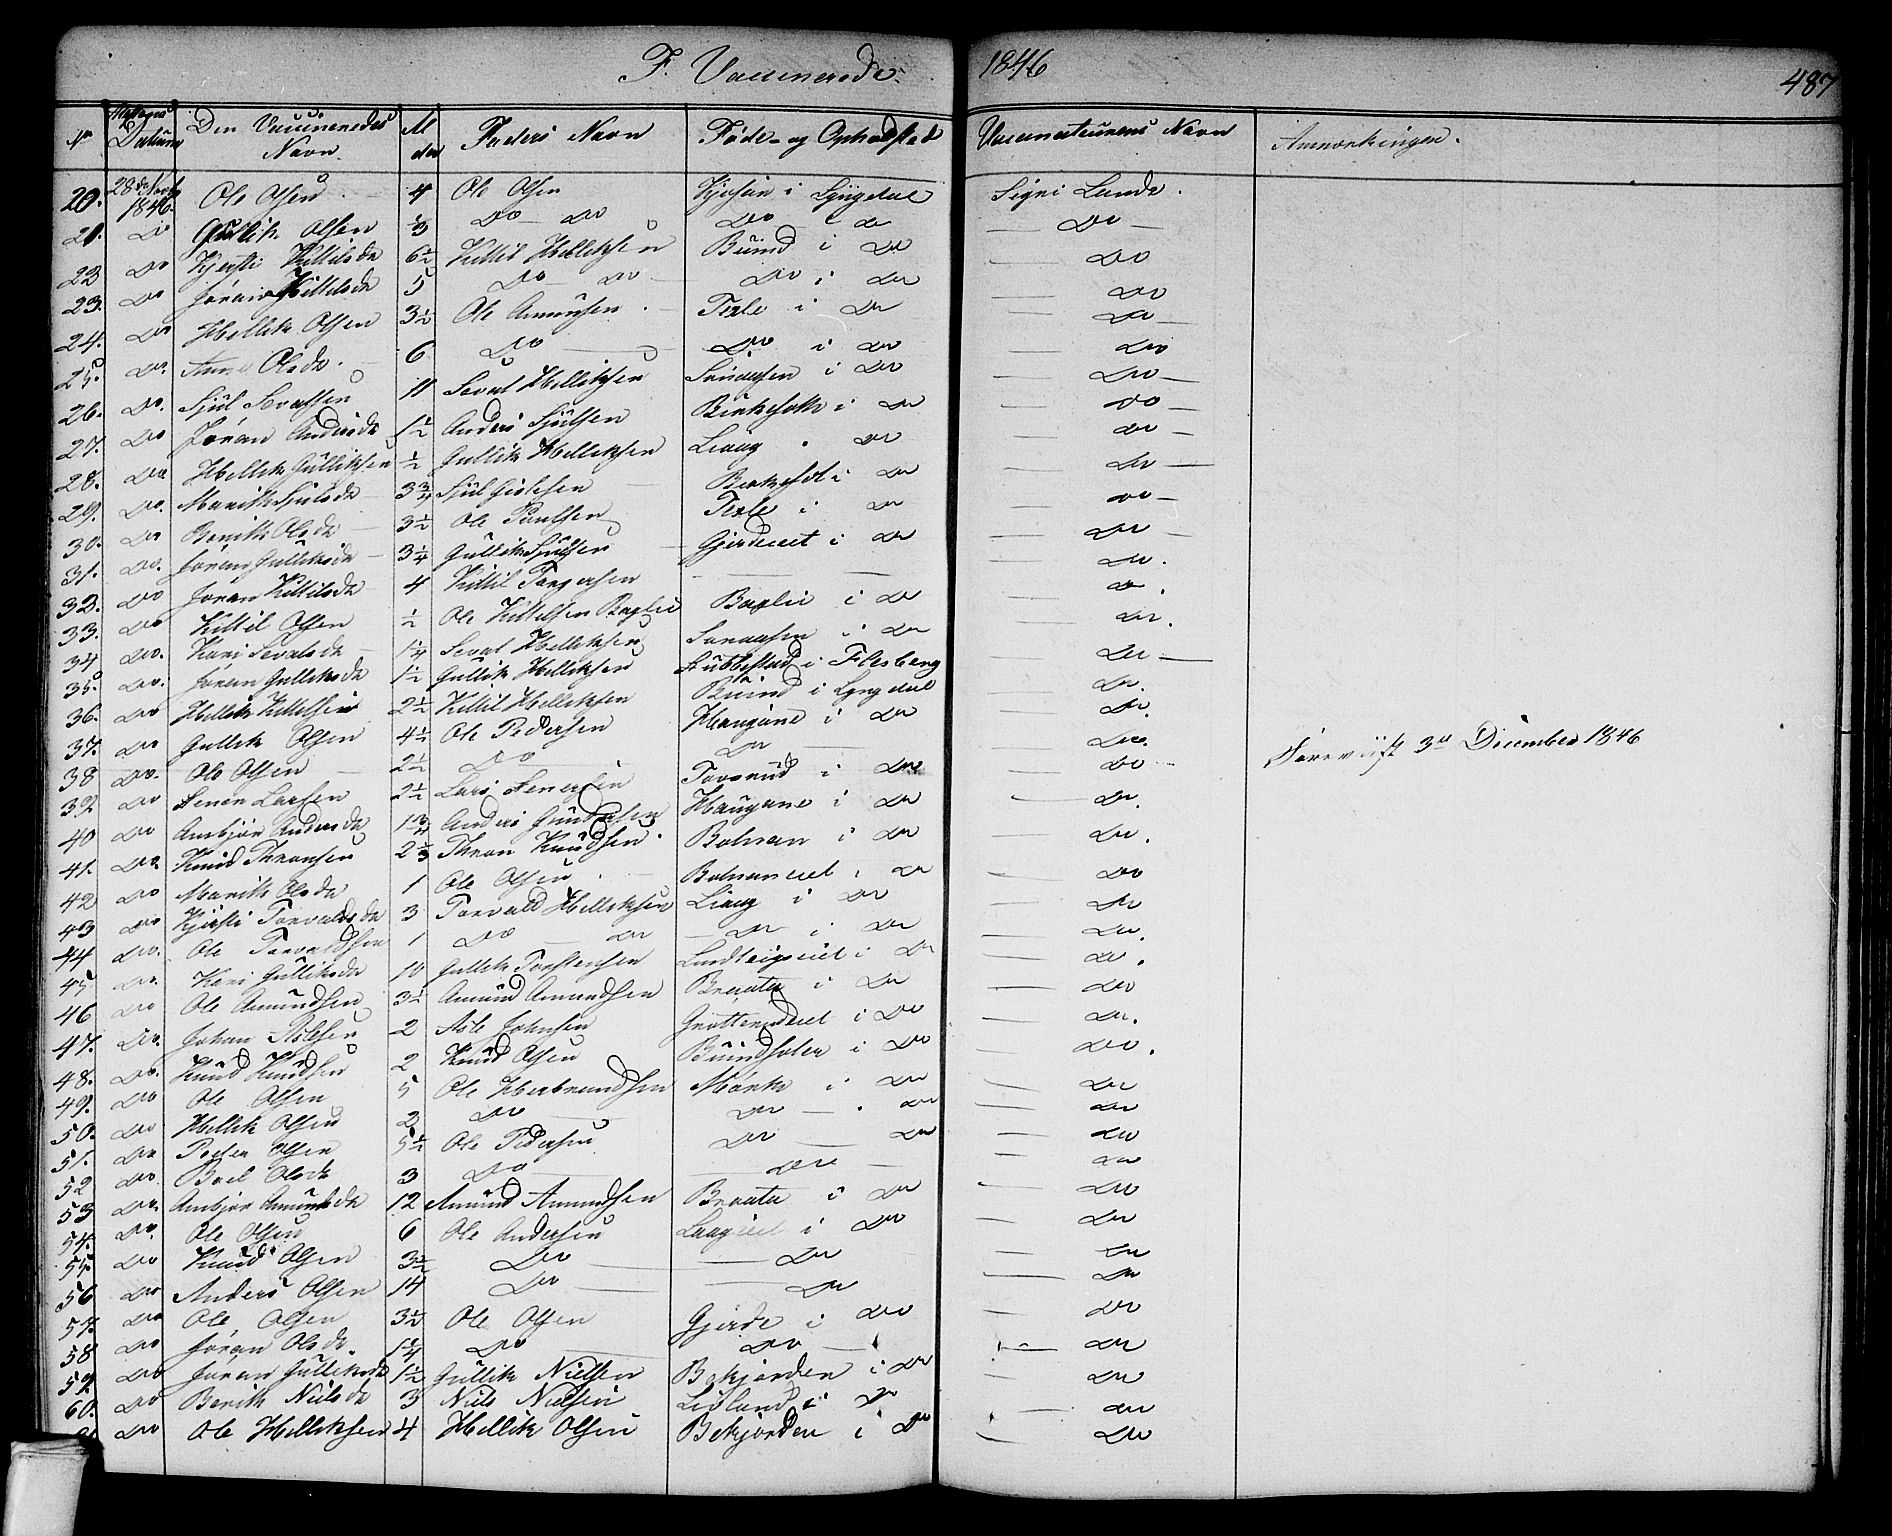 F. Vaccinerede. 1846 487
No Datum Den Vaccineredes Navn. Alder Faders Navn Føde- og Opholdsted Vaccinateurens Navn Anmærkninger.
20. 28de 1846. Ole Olsen 4 Ole Olsen i Lyngdal Sigri Lunde.
21. Do Gullik Olsen 1/3 Do Do Do i Do Do
23 Do Kjersti Kittilsdr 6 1/2 Kittil Helliksen Buind i Do Do
23. Do Jöran Kittilsdr 5 Do Do Do i Do Do
24. Do Hellik Olsen 3 1/2 Ole Amunsen Texle i Do Do
25. Do. Anne Olsdr. 6 Do Do i Do Do
26. Do. Sjul Sevalsen 11 Seval Helliksen i Do Do
27. Do Jöran Andersdr 1 1/2 Anders Sjulsen i Do Do
28. Do Hellik Gulliksen 1/2 Gullik Helliksen Liaug Do Do
29. Do. Marith Sjulsdr 3 3/4 Sjul i Do Do
30. Do Berith Olsdr 3 1/2 Ole Paulsen Texle i Do Do
31. Do. Jöran Gulliksdr 3 1/4 Gullik Sjulsen i Do Do
32. Do Jöran Kittilsdr 4 Kittil Torgersen Do.
33. Do Kittil Olsen 1/2 Ole Kittelsen Baglie Baglie i Do Do.
34 Do. Kari Sevalsdr 1 1/4 Seval Helliksen i Do Do
35. Do. Jöran Gulliksdr 1 1/2 Gullik Helliksen Stubbestad i Flesberg Do.
36. Do Hellik Kittelsen 2 1/2 Kittil Helliksen Buind i Lyngdal Do.
37. Do Gullik Olsen 4 1/2 Ole Pedersen Haugane i Do Do.
38 Do. Ole Olsen 2 1/2 Do Do Do Farevist 3die December 1846
39 Do Larsen 2 1/2 Lars i Do Do.
40 Do Anbjør Andersdr 1 3/4 Anders Gundersen Haugane i Do Do.
41. Do. Knud Thronsen 2 1/3 Thron Knudsen Bolman i Do Do
42 Do Marith Olsdr 1 Ole Olsen Bolmaneiet i Do Do
43 Do Kjersti Torvaldsdr 3 Torvald Helliksen Liaug i Do Do.
44 Do. Ole Torvaldsen 1 Do Do Do i Do Do.
45 Do. Kari Gulliksdr 10 Gullik Torstensen i Do Do
46 Do Ole Amundsen 3 1/2 Amund Amundsen Braata i Do Do.
47. Do. Johan Aslesen 2 Asle Johnsen i Do Do.
48. Do. Knud Knudsen 2 Knud Olsen i Do Do
49. Do Ole Olsen 5 Ole Herbrandsen Mörke i Do Do
50. Do Hellik Olsen 2 Do Do Do Do
51. Do Peder Olsen 5 1/2 Ole Pedersen Do Do Do
52 Do. Boel Olsdr 3 Do Do Do
53 Do. Anbjør Amundsdr 12 Amund Amundsen Braata i Do Do
54. Do. Ole Olsen 6 Ole Andersen i Do Do
55. Do Knud Olsen 3 1/2 Do Do Do
56 Do Anders Olsen 14 Do Do Do
57. Do Ole Olsen 3 1/2 Ole Olsen Gjerde i Do Do
58 Do Jöran Olsdr 1 1/4 Do Do Do
59 Do Jöran Gulliksdr 1 1/2 Gullik Nielsen Bekjorden i Do Do
60. Do Berith Nielsdr 3 Niels Nielsen Lidland i Do Do
Do Ole Helliksen 4 Hellik Olsen Bekjorden i Do Do